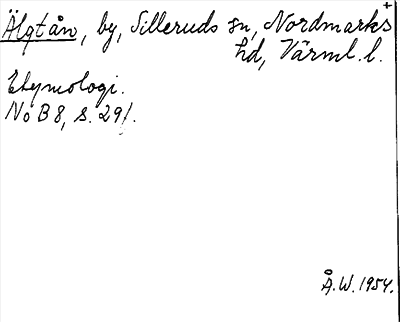 +
Älgtån, by, Silleruds sn, Nordmarks
hd, Värml. l.
Etymologi.
No B 8, s. 291.
Å.W. 1954.